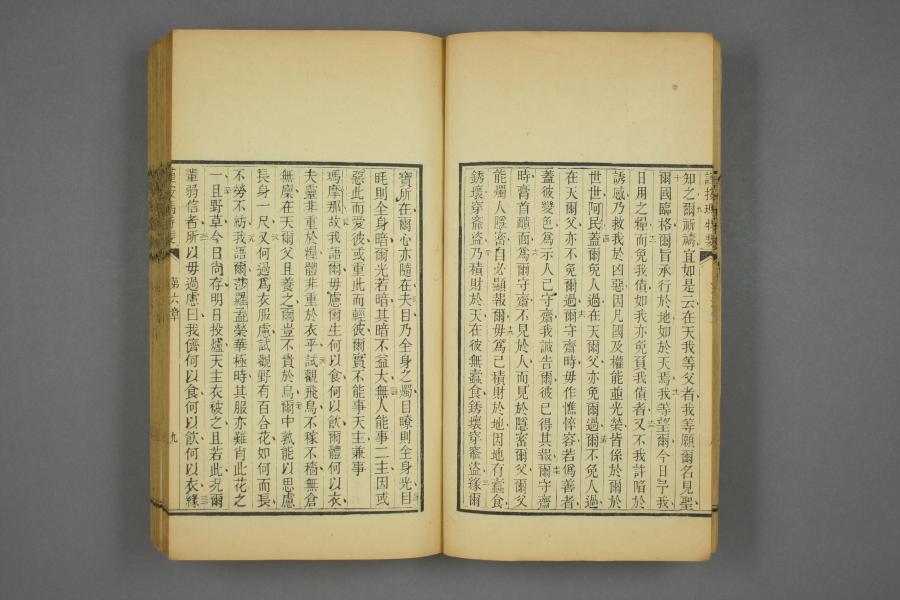 知之爾祈禱宜如是云在天我等父者我等願爾名見聖
爾國臨格爾旨承行於地如於天焉我等望爾今日予我
日用之糧而免我債如我亦免負我債者又不我許陷於
誘感乃救我於凶惡因凡國及權能並光榮皆係於爾於
世世阿民蓋爾免人過在天爾父亦免爾過爾不免人過
在天爾父亦不免爾過爾守齋時毋作憔悴容若僞善者
蓋彼變色爲示人已守齋我誠告爾彼已得其報爾守齋
時膏首頮面爲爾守齋不見於人而見於隱密爾父爾父
能燭人隱密自必顯報爾毋爲己積財於地因地有蠹食
銹壞穿窬盜乃積財於天在彼無蠹食銹壞穿窬盜緣爾
寶所在爾心亦隨在夫目乃全身之燭目瞭則全身光目
眊則全身暗爾光若暗其暗不益大無人能事二主因或
惡此而愛彼或重此而輕彼爾實不能事天主兼事
瑪摩那故我語爾毋慮爾生何以食何以飲爾體何以衣
夫靈非重於糧體非重於衣乎試觀飛鳥不稼不穡無倉
無廩在天爾父且養之爾豈不貴於鳥爾中孰能以思慮
長身一尺又何過爲衣服慮試觀野有百合花如何而長
不勞不紡我語爾莎羅孟榮華極時其服亦難肖此花之
一且野草今日尚存明日投爐天主衣被之且若此況爾
輩弱信者所以毋過慮曰我儕何以食何以飲何以衣緣
第六章
九